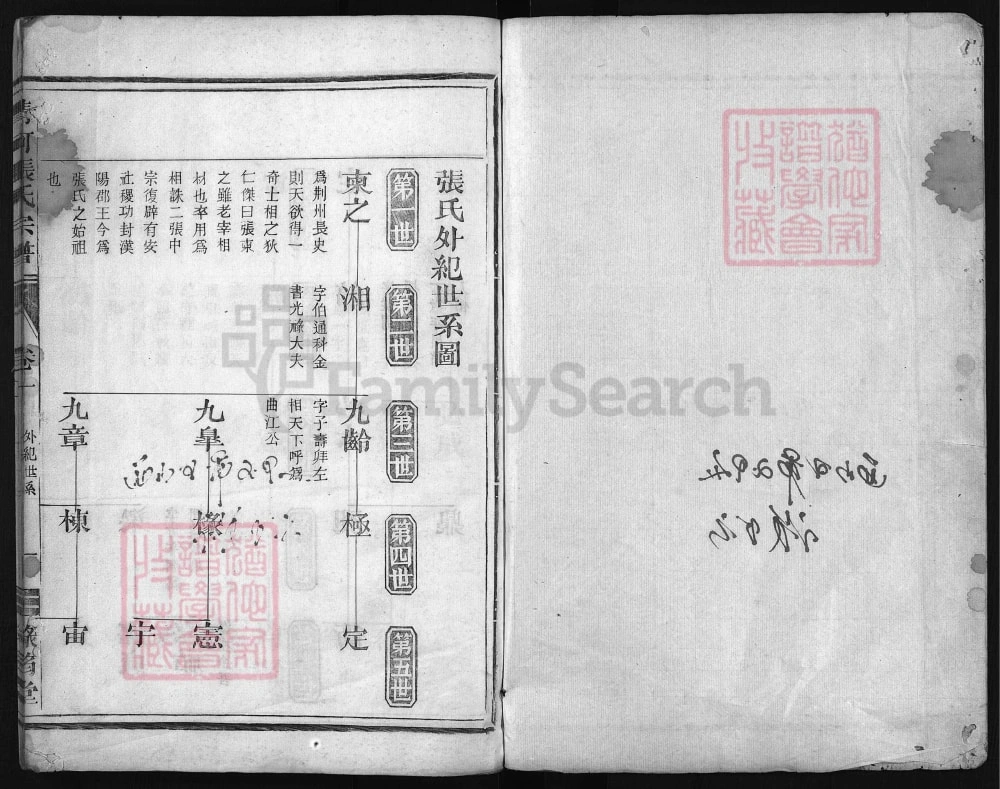 張氏外紀世系圖
第一世
第二世
第三世
第四世
第五世
柬之
湘
九齡
極
定
爲荆州長史
則天欲得一
奇士相之狄
仁傑曰張柬
之雖老宰相
材也卒用爲
相誅二張中
宗復辟有安
社稷功封漢
陽郡王今爲
張氏之始祖
也
字伯通科金
書光祿大夫
字子壽拜左
相天下呼爲
曲江公
九皐
憲
宇
九章
棟
宙
清河張氏宗譜
卷一
外紀世系
一
FamilySearch
譜學會
收藏
譜學會
收藏